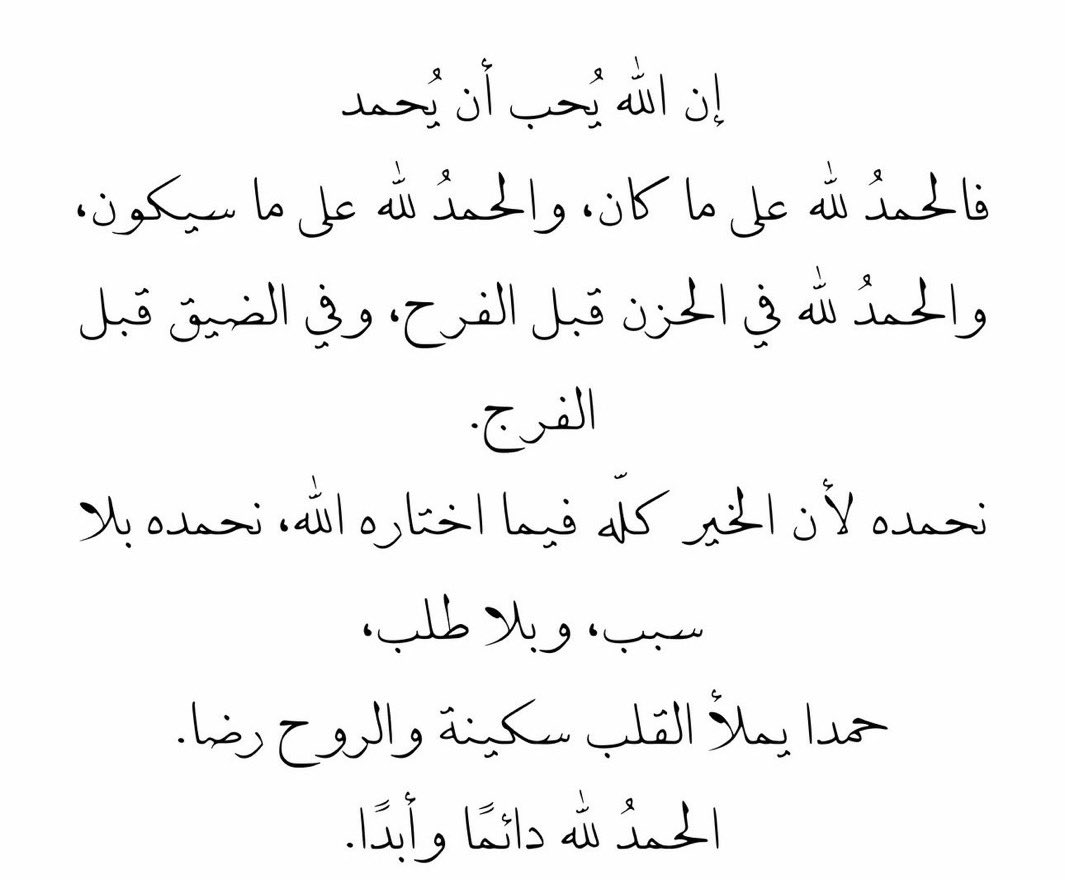 إن الله يُحب أن يُحمد
فالحمدُ لله على ما كان، والحمدُ لله على ما سيكون،
والحمدُ لله في الحزن قبل الفرح، وفي الضيق قبل
الفرج.
نحمده لأن الخير كلّه فيما اختاره الله، نحمده بلا
سبب، وبلا طلب،
حمدا يملأ القلب سكينة والروح رضا.
الحمدُ لله دائمًا وأبدًا.